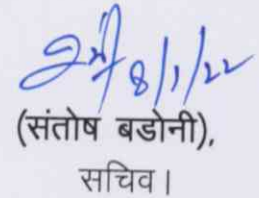 8/1/22
(संतोष बडोनी),
सचिव।